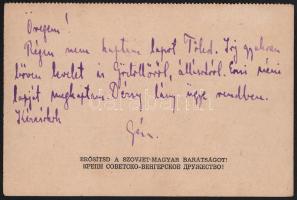 Öregem!
Régen nem kaptam lapot Tőled. Írj gyakran
bőven levelet is Gödöllőről, állásról. Erzsi néni
lapját megkaptam. Derzsy lány ügye rendben.
Kézcsók
Géza
ERŐSÍTSD A SZOVJET-MAGYAR BARÁTSÁGOT!
КРЕПИ СОВЕТСКО-ВЕНГЕРСКОЕ ДРУЖЕСТВО!